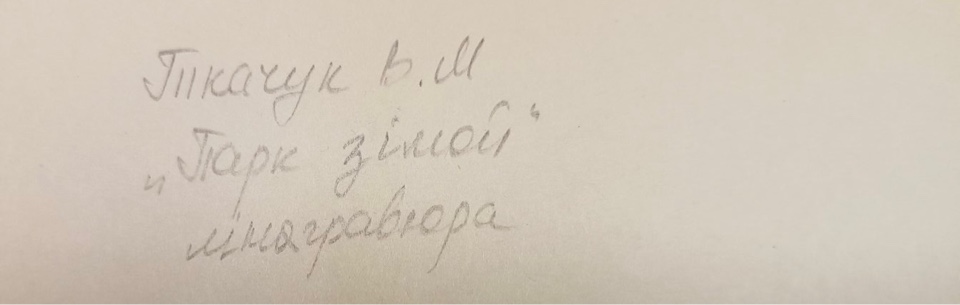 Ткачук В.М
„Парк зімой“
ліногравюра